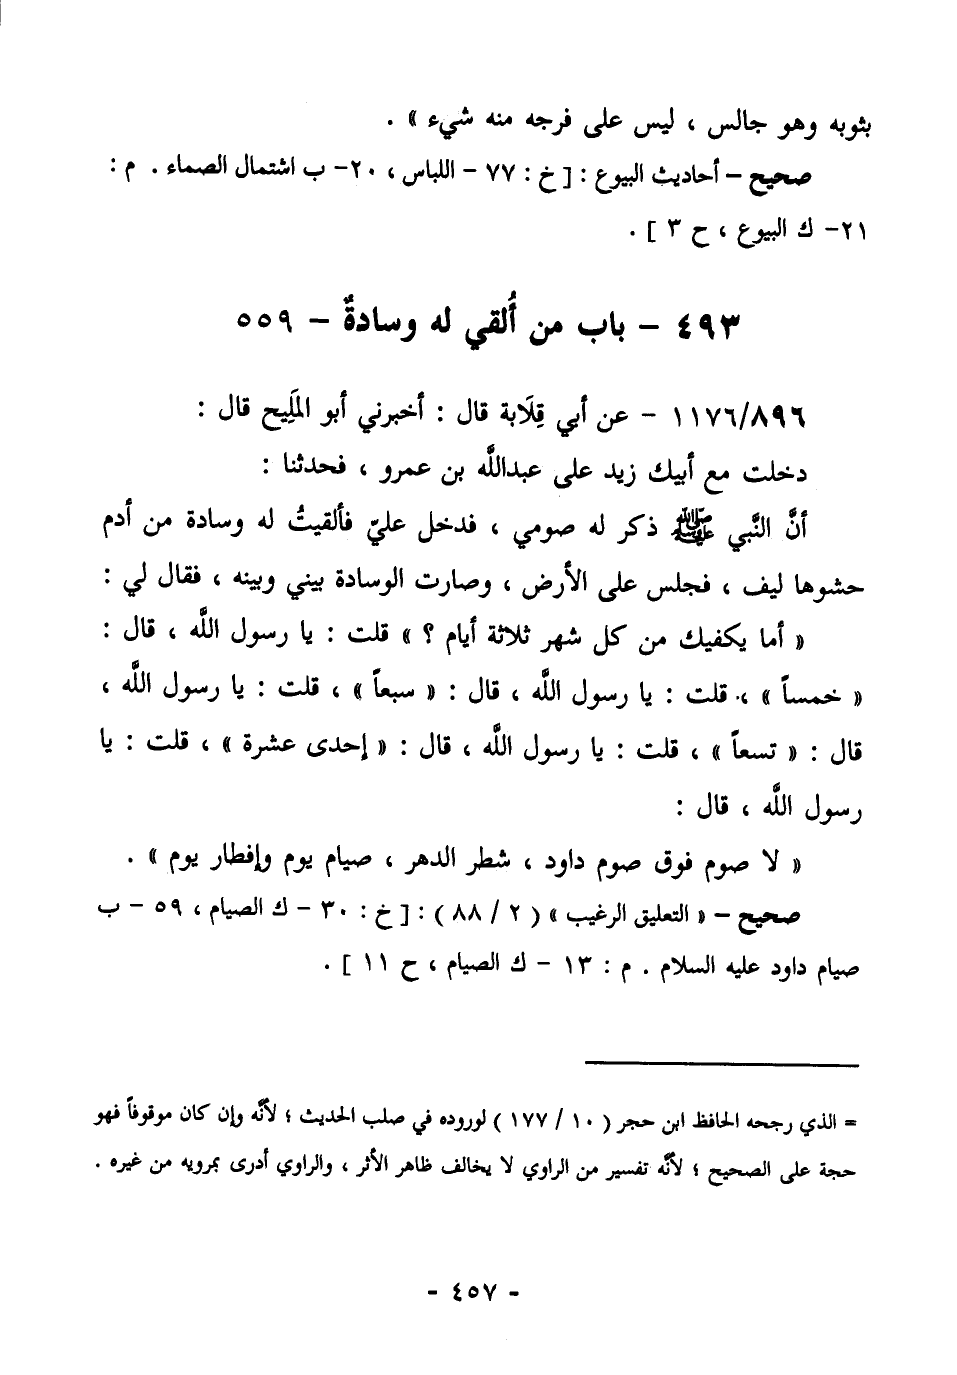 بثوبه وهو جالس ، ليس على فرجه منه شيء » .
صحيح – أحاديث البيوع : [ خ : ٧٧ – اللباس ، ٢٠- ب اشتمال الصماء . م :
٢١- ك البيوع ، ح ٣ ] .
٤٩٣ – باب من أُلقي له وسادةٌ – ٥٥٩
١١٧٦/٨٩٦ – عن أبي قِلَابة قال : أخبرني أبو المَلِيح قال :
دخلت مع أبيك زيد على عبدالله بن عمرو ، فحدثنا :
أنَّ النَّبي ﷺ ذكر له صومي ، فدخل عليّ فألقيتُ له وسادة من أدم
حشوها ليف ، فجلس على الأرض ، وصارت الوسادة بيني وبينه ، فقال لي :
« أما يكفيك من كل شهر ثلاثة أيام ؟ » قلت : يا رسول الله ، قال :
« خمساً » ، قلت : يا رسول الله ، قال : « سبعاً » ، قلت : يا رسول الله ،
قال : « تسعاً » ، قلت : يا رسول الله ، قال : « إحدى عشرة » ، قلت : يا
رسول الله ، قال :
« لا صوم فوق صوم داود ، شطر الدهر ، صيام يوم وإفطار يوم » .
صحيح – « التعليق الرغيب » ( ٢ / ٨٨ ) : [ خ : ٣٠ – ك الصيام ، ٥٩ – ب
صيام داود عليه السلام . م : ١٣ – ك الصيام ، ح ١١ ] .
= الذي رجحه الحافظ ابن حجر ( ١٠ / ١٧٧ ) لوروده في صلب الحديث ؛ لأنَّه وإن كان موقوفاً فهو
حجة على الصحيح ؛ لأنَّه تفسير من الراوي لا يخالف ظاهر الأثر ، والراوي أدرى بمرويه من غيره .
- ٤٥٧ -